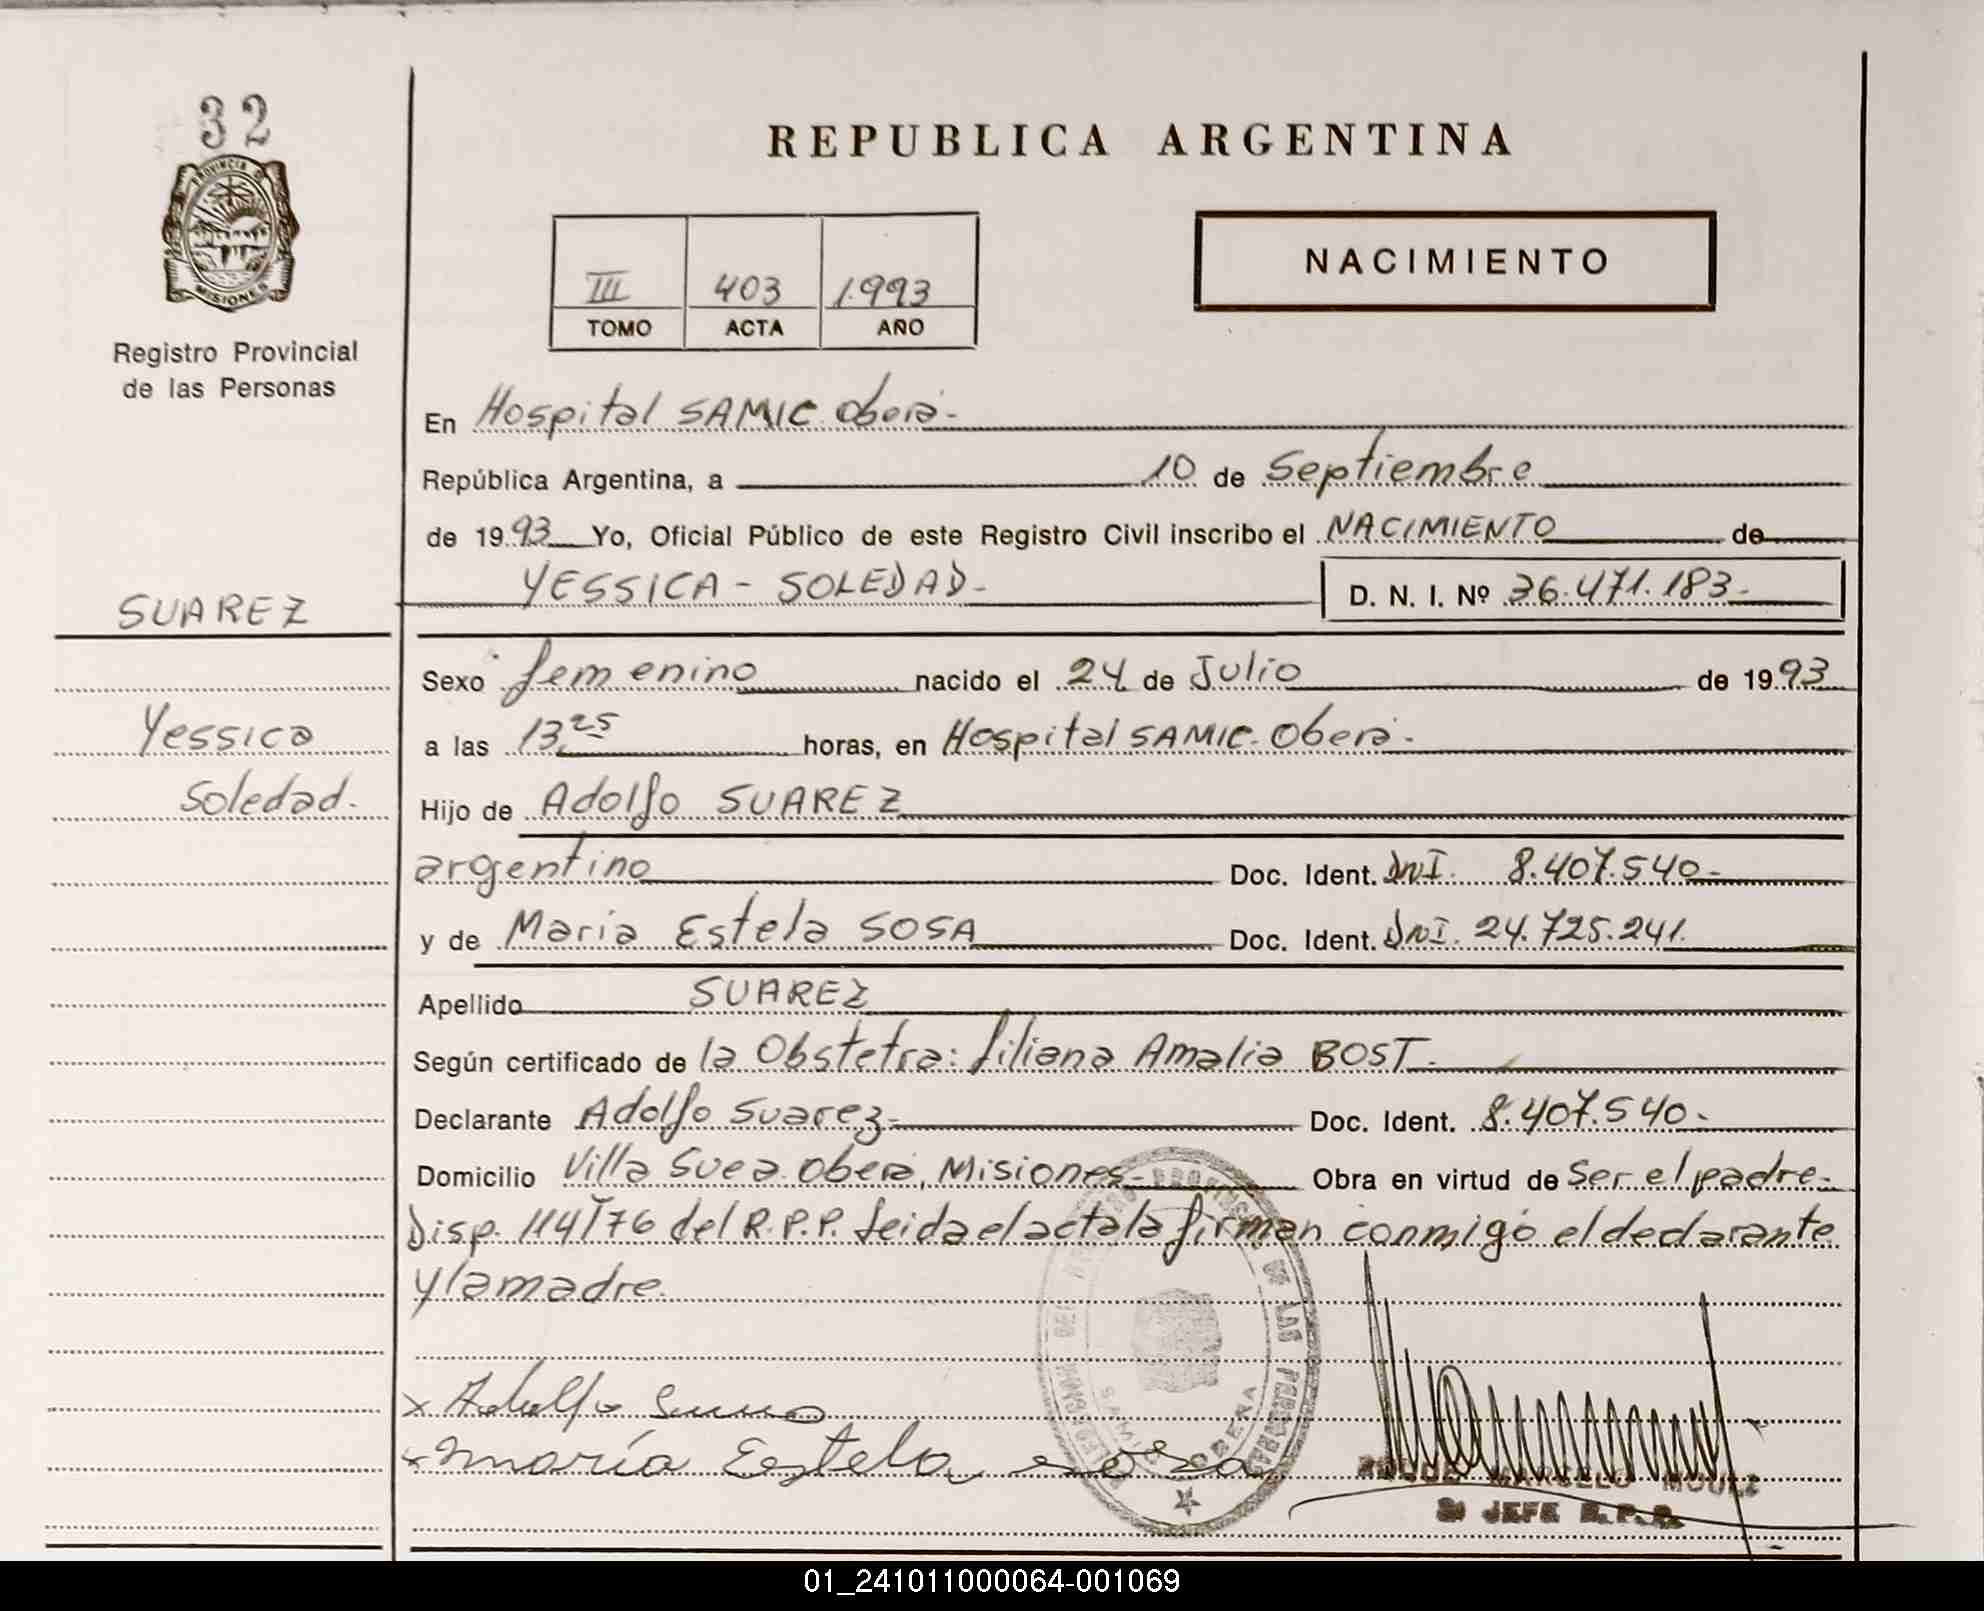 32
PROVINCIA DE
MISIONES
Registro Provincial
de las Personas
SUAREZ
Yessica
Soledad.
REPUBLICA ARGENTINA
III 403 1.993
TOMO ACTA AÑO
NACIMIENTO
En Hospital SAMIC Oberá-
República Argentina, a 10 de Septiembre
de 1993 Yo, Oficial Público de este Registro Civil inscribo el NACIMIENTO de
YESSICA - SOLEDAD- D. N. I. Nº 36.471.183-
Sexo femenino nacido el 24 de Julio de 1993
a las 13,25 horas, en Hospital SAMIC. Oberá-
Hijo de Adolfo SUAREZ
argentino Doc. Ident. DNI. 8.407.540-
y de María Estela SOSA Doc. Ident. DNI. 24.725.241.
Apellido SUAREZ
Según certificado de la Obstetra: Liliana Amalia BOST-
Declarante Adolfo Suarez- Doc. Ident. 8.407.540-
Domicilio Villa Svea Oberá, Misiones- Obra en virtud de Ser el padre-
Disp. 114/76 del R.P.P. Leida el acta la firman conmigo el declarante
y la madre.
x Adolfo Suarez
x maría Estela sosa
OBERA
MARCELO
JEFE R.P.P.
01_241011000064-001069